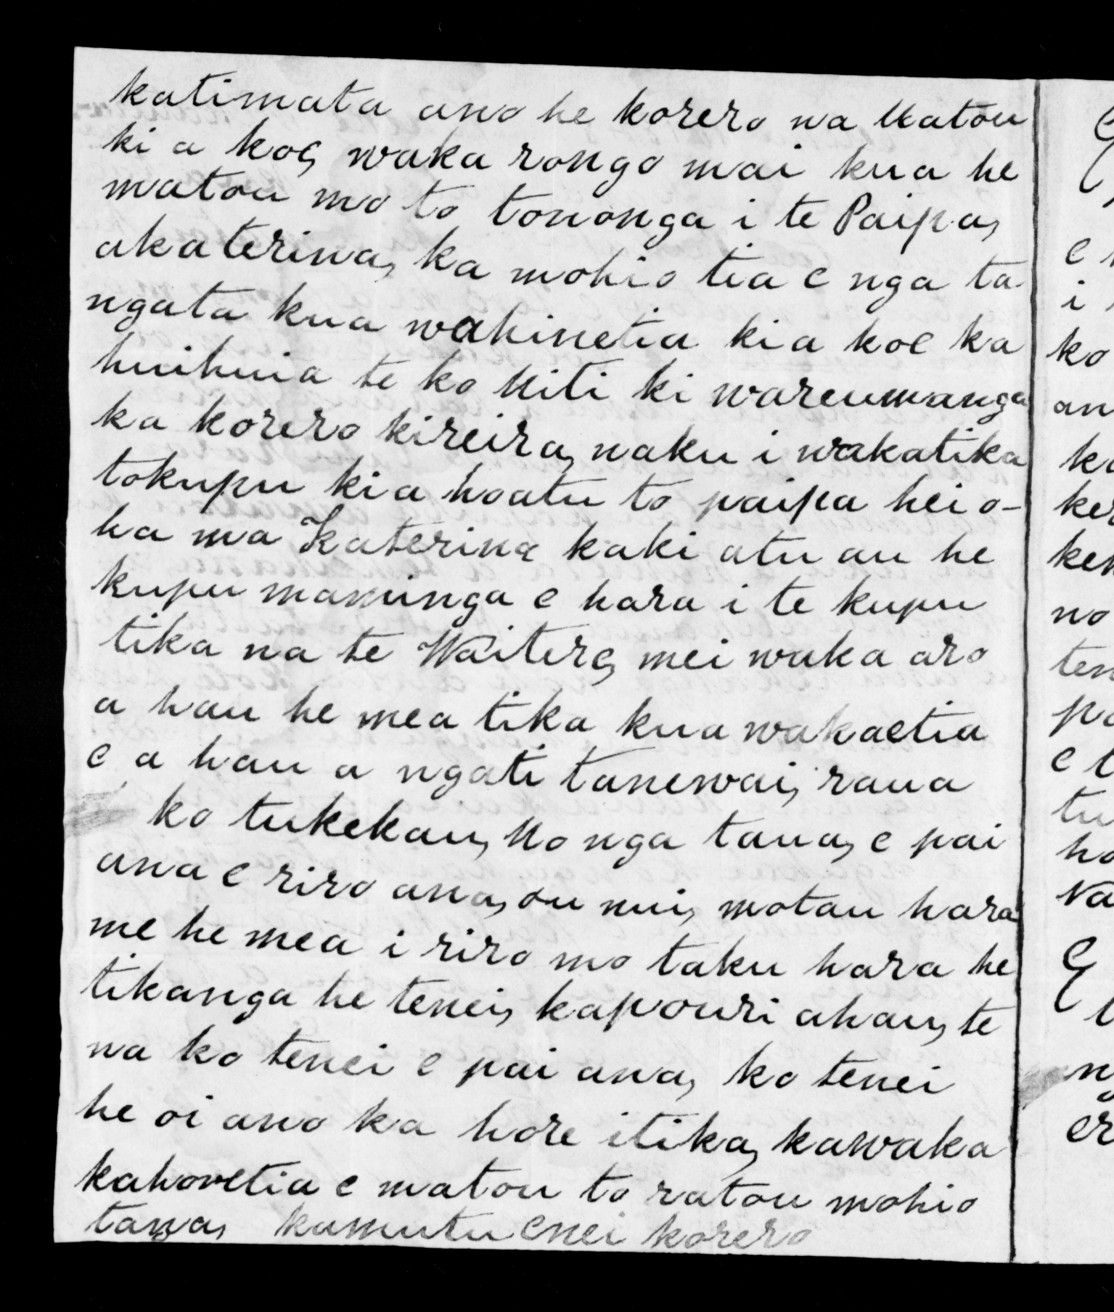 katimata ano he korero na Matou
ki a koe, waka rongo mai kua he
matou mo to tononga i te Paipa,
akaterina, ka mohio tia e nga ta
ngata kua wahinetia ki a koe ka
huihuia te ko Miti ki wareumanga
ka korero kireira, naku i wakatika
tokupu kia hoatu to paipa hei o-
ha ma Katerina kaki atu au he
kupu maminga e hara i te kupu
tika na te Waitere, mei waka aro
a hau he mea tika kua wakaetia
e a hau a ngati tanewai, raua
ko tukekau, No nga taua, e pai
ana e riro ana, ou nui, motau hara
me he mea i riro mo taku hara he
tikanga he tenei, kapouri ahau, te
na ko tenei e pai ana, ko tenei
he oi ano ka hore itika, kawaka
kahoretia e matou to ratou mohio
tanga, kamutu enei korero
E
e
i
ko
an
ka
ker
ken
no
ten
pa
e
tu
ho
Na
E
ng
er